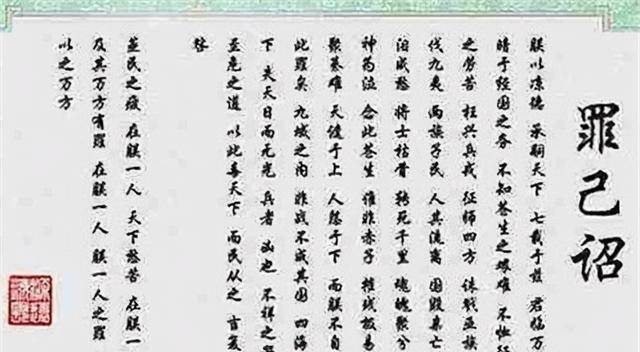 罪己诏
朕以凉德 承嗣天下 七载于兹 君临万
暗于经国之务 不知苍生之艰难 不恤征
之劳苦 枉兴兵戎 征师四方 诛戮异族
伐九夷 两族子民 人其流离 国殷弃亡
泊成愁 将士枯骨 转死千里 魂魄聚兮
神为泣 念此苍生 谁非赤子 摧残板易
聚寡难 天谴于上 人怨于下 而朕不自
此罪矣 九域之内 非战不成其国 四海
下 夫天日而无光 兵者 凶也 不祥之器
至危之道 以此毒天下 而民从之 吉复
咎
并民之疲 在朕一人 天下愁苦 在朕一
及其万方有罪 在朕一人 朕一人之罪
以之万方